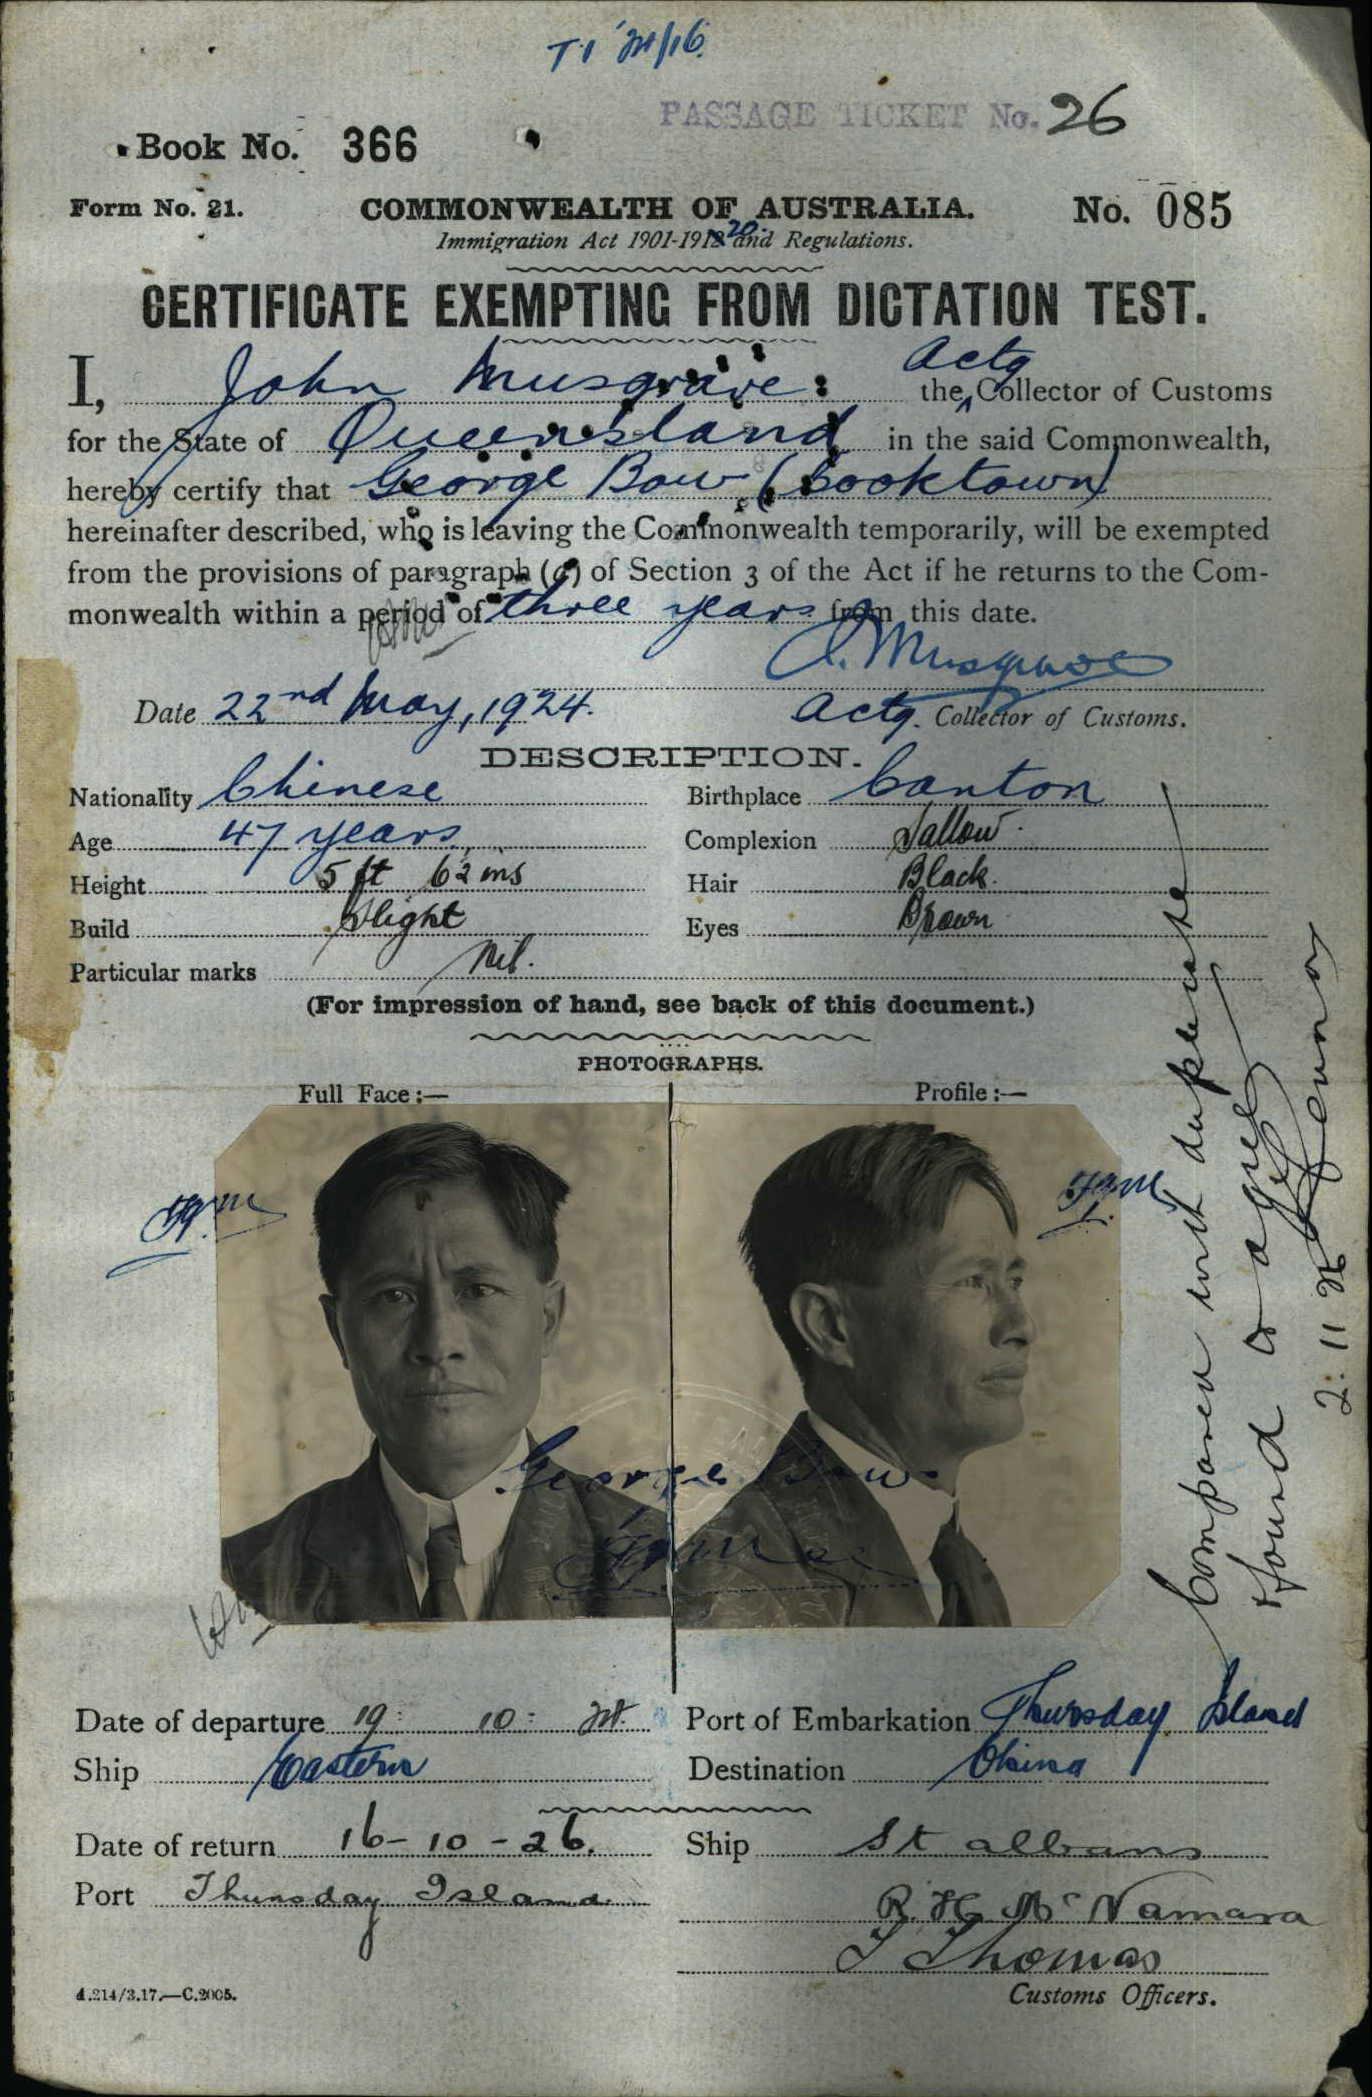 T I 24/16
PASSAGE TICKET No. 26
Book No. 366
Form No. 21. COMMONWEALTH OF AUSTRALIA. No. 085
Immigration Act 1901-1912 20 and Regulations.
CERTIFICATE EXEMPTING FROM DICTATION TEST.
I, John Musgrave the Actg Collector of Customs
for the State of Queensland in the said Commonwealth,
hereby certify that George Bow (Cooktown)
hereinafter described, who is leaving the Commonwealth temporarily, will be exempted
from the provisions of paragraph (a) of Section 3 of the Act if he returns to the Com-
monwealth within a period of three years from this date.
J. Musgrave
Date 22nd May, 1924. Actg. Collector of Customs.
DESCRIPTION.
Nationality Chinese Birthplace Canton
Age 47 years Complexion Sallow.
Height 5 ft 6½ ins Hair Black.
Build Slight Eyes Brown
Particular marks Nil.
(For impression of hand, see back of this document.)
PHOTOGRAPHS.
Full Face:— Profile:—
George Bow
Date of departure 19: 10: 24. Port of Embarkation Thursday Island
Ship Eastern Destination China
Date of return 16-10-26. Ship St Albans
Port Thursday Island.
R. H. McNamara
T Thomas
Customs Officers.
4.214/3.17.—C.2005.
Compared with duplicate
&amp; found to agree
2. 11 26